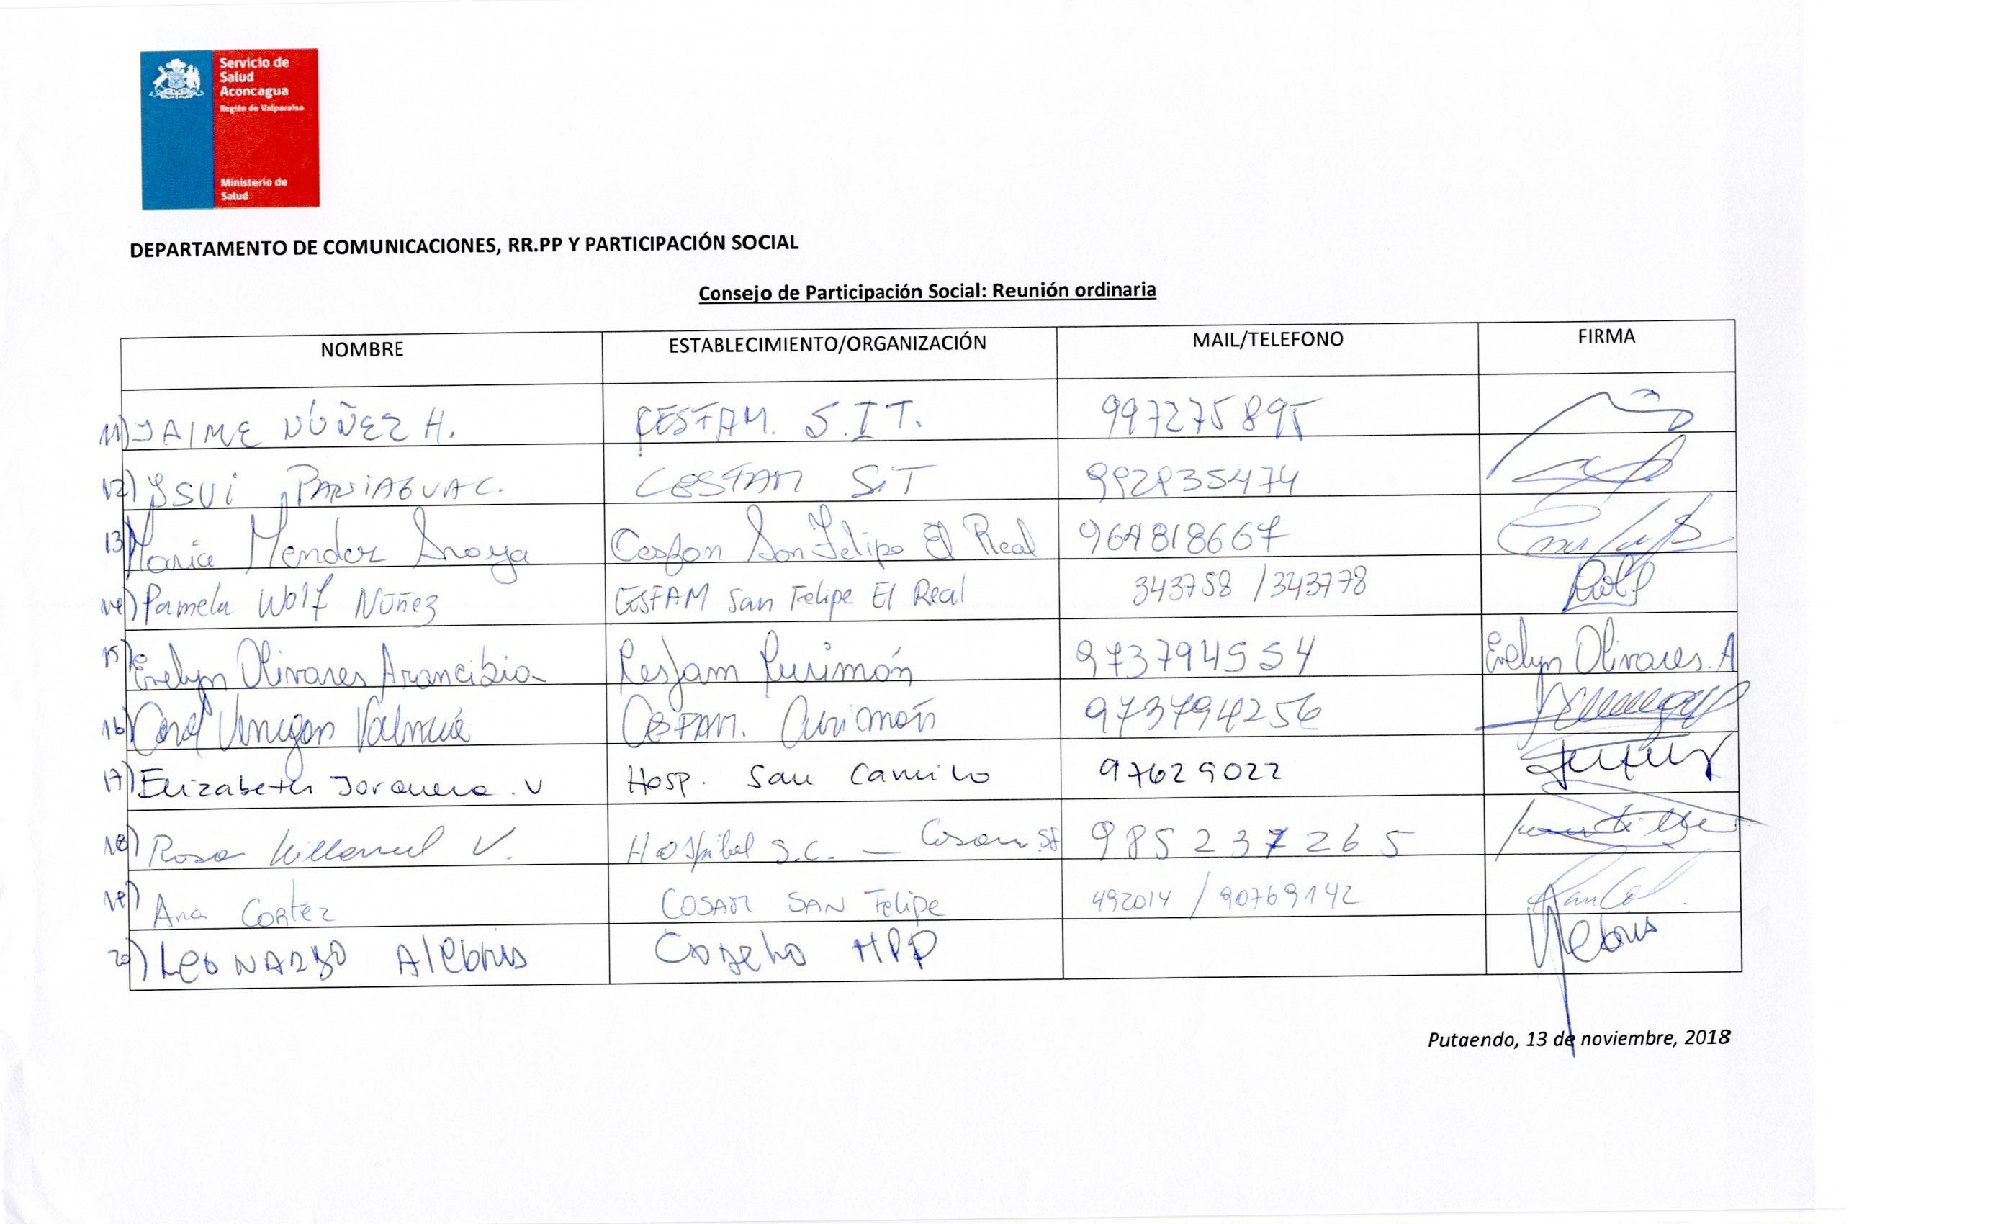 Servicio de
Salud
Aconcagua
Región de Valparaíso
Ministerio de
Salud
DEPARTAMENTO DE COMUNICACIONES, RR.PP Y PARTICIPACIÓN SOCIAL
Consejo de Participación Social: Reunión ordinaria
NOMBRE ESTABLECIMIENTO/ORGANIZACIÓN MAIL/TELEFONO FIRMA
11) JAIME NÚÑEZ H. CESFAM. S.I.T. 997275895
12) PANIAGUA C. CESFAM SIT 992835474
13) María Mendez Cesfam San Felipe El Real 964818667
14) Pamela Wolf Núñez CESFAM San Felipe El Real 343758 / 343778
15) Evelyn Olivares Arancibia Cesfam Curimón 973794554 Evelyn Olivares. A
16) Carol Valencia CESFAM. Curimón 973794256
17) Elizabeth Jorquera. V Hosp. San Camilo 97629022
18) Rosa Villarroel V. Hospital S.C. — Cosam SF 985237265
19) Ana Cortez COSAM SAN Felipe 492014 / 90769142
20) LEONARDO Alebris HPP
Putaendo, 13 de noviembre, 2018